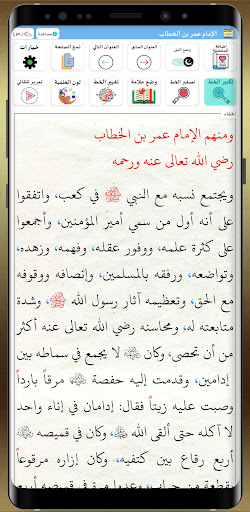 الإمام عمر بن الخطاب
مساعدة
رجوع
إضافة للمفضلة
وضع الليل
العنوان السابق
العنوان التالي
نسخ الصفحة
خيارات
تكبير الخط
تصغير الخط
وضع علامة
تغيير الخط
لون الخلفية
تمرير تلقائي
إخفاء
ومنهم الإمام عمر بن الخطاب
رضي الله تعالى عنه ورحمه
ويجتمع نسبه مع النبي ﷺ في كعب، واتفقوا
على أنه أول من سمي أمير المؤمنين، وأجمعوا
على كثرة علمه، ووفور عقله، وفهمه، وزهده،
وتواضعه، ورفقه بالمسلمين، وإنصافه ووقوفه
مع الحق، وتعظيمه آثار رسول الله ﷺ، وشدة
متابعته له، ومحاسنه رضي الله تعالى عنه أكثر
من أن تحصى، وكان ﷺ لا يجمع في سماطه بين
إدامين، وقدمت إليه حفصة ﷺ مرقاً بارداً
وصبت عليه زيتاً فقال: إدامان في إناء واحد
لا آكله حتى ألقى الله ﷻ، وكان في قميصه ﷺ
أربع رقاع بين كتفيه، وكان إزاره مرقوعاً
بقطعة من جراب، وعدوا مرة في قميصه أربع